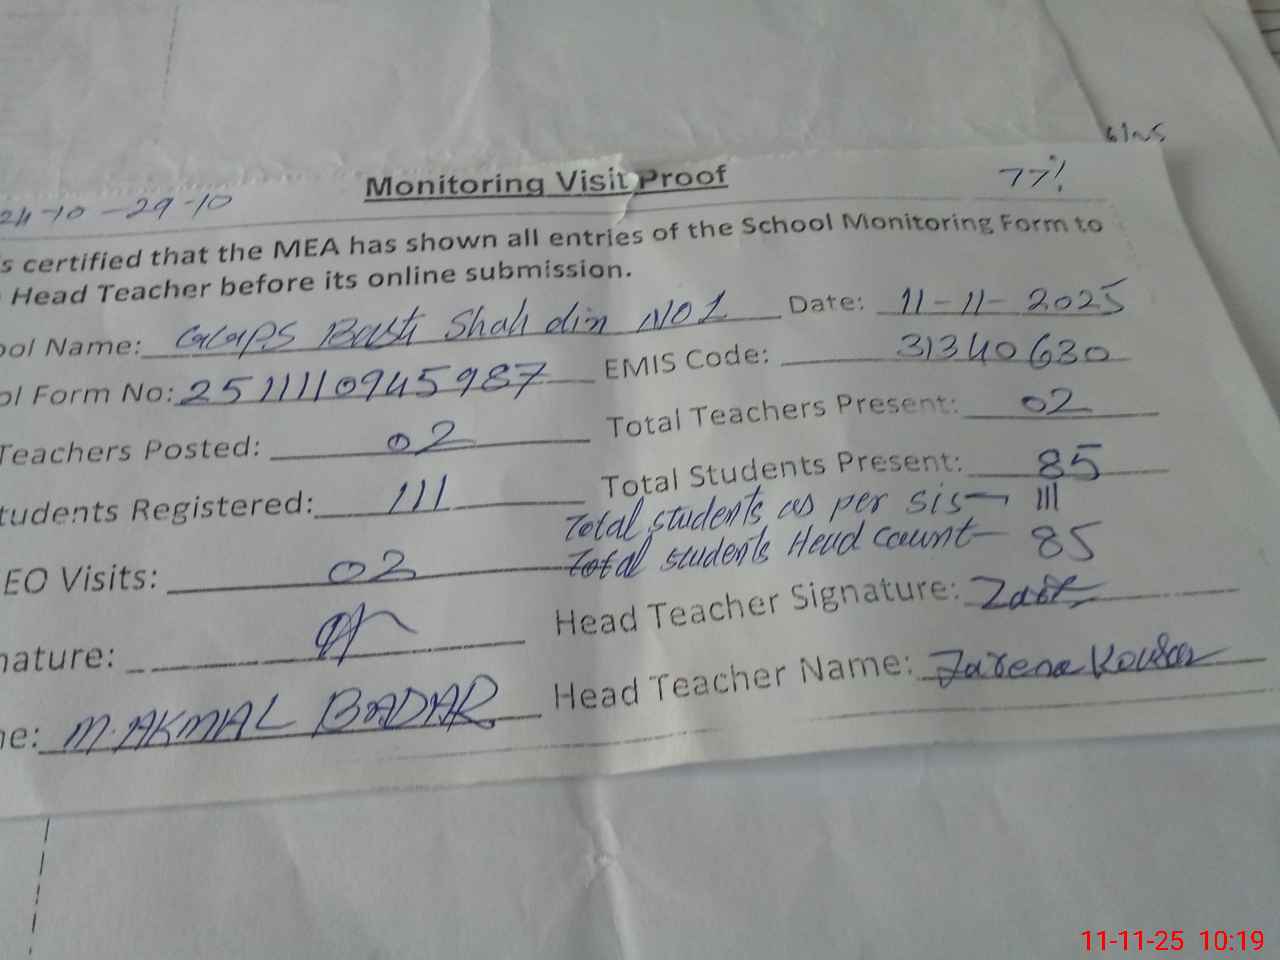 Monitoring Visit Proof
77%
24-10 - 29-10
s certified that the MEA has shown all entries of the School Monitoring Form to
Head Teacher before its online submission.
ool Name: GGPS Basti Shah din NO 1 Date: 11-11-2025
ol Form No: 2511110945987 EMIS Code: 31340630
Teachers Posted: 02 Total Teachers Present: 02
tudents Registered: 111 Total Students Present: 85
Total students as per sis - 111
Total students Head count - 85
EO Visits: 02
nature: Head Teacher Signature:
ne: M. AKMAL BADAR Head Teacher Name: Zareena Kousar
11-11-25 10:19